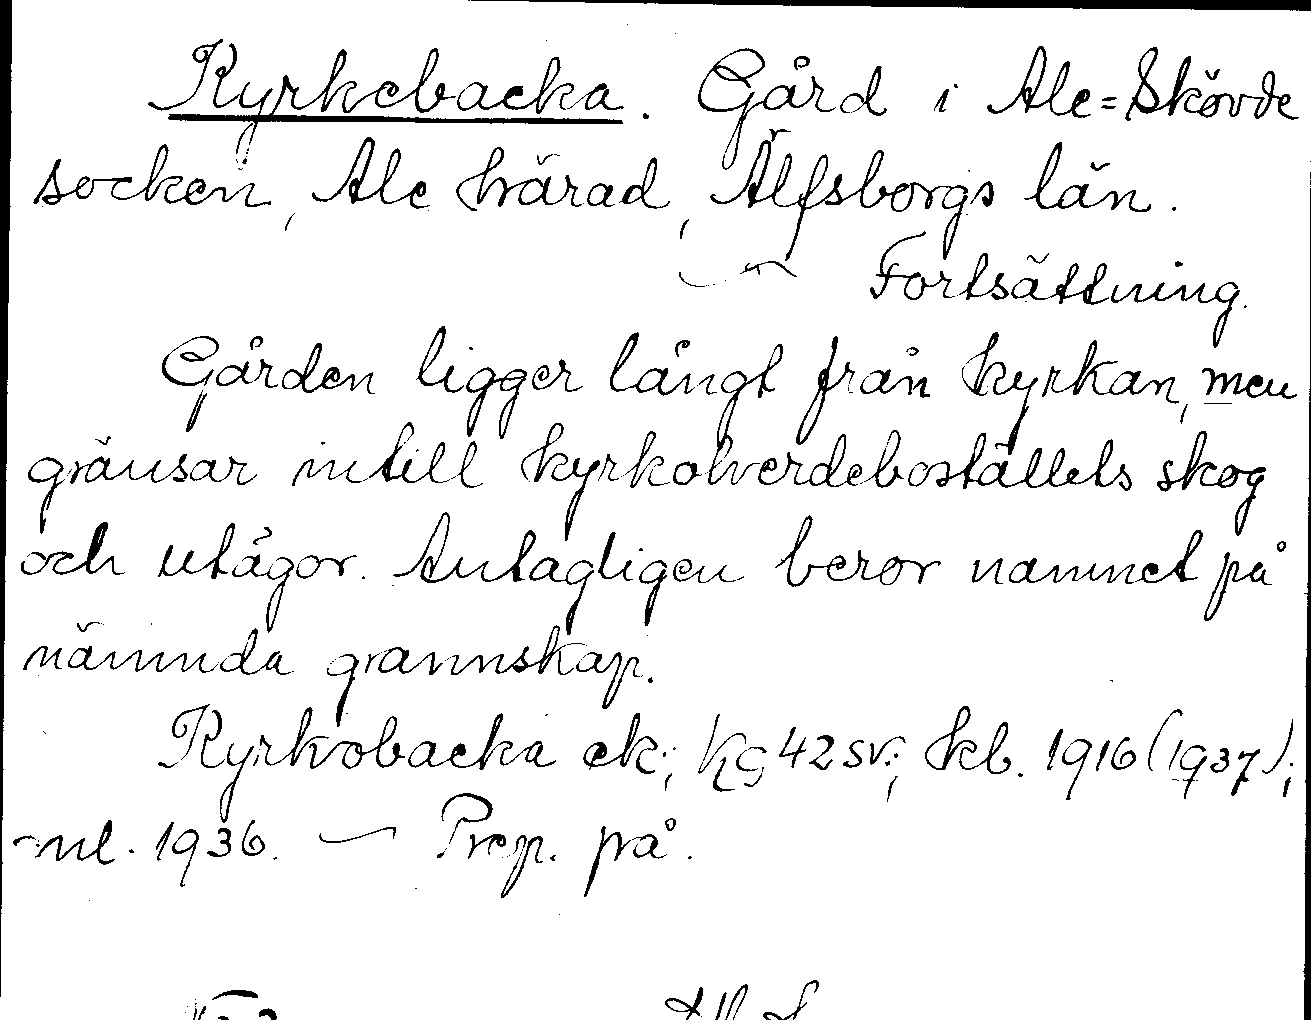 Kyrkebacka. Gård i Ale=Skövde
socken, Ale härad, Älfsborgs län.
— Fortsättning.
Gården ligger långt från kyrkan, men
gränsar intill kyrkoherdeboställets skog
och utägor. Antagligen beror namnet på
nämnda grannskap.
Kyrkobacka ek; KG 42 sv.; kb. 1916 (1937);
ml. 1936. — Prep. på.